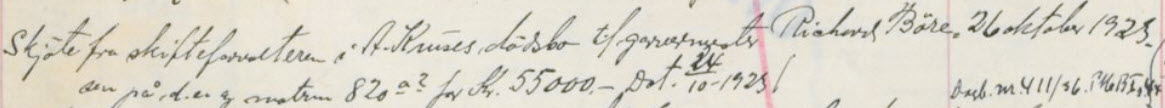 Skjøte fra skifteforvalteren i A. Kruses dødsbo til garvermester Richard Böre. 26 oktober 1923.
sen på d.en g matrn 820 a² for Kr. 55000.- Dat. 24/10-1923
Dagb. nr 411/26.